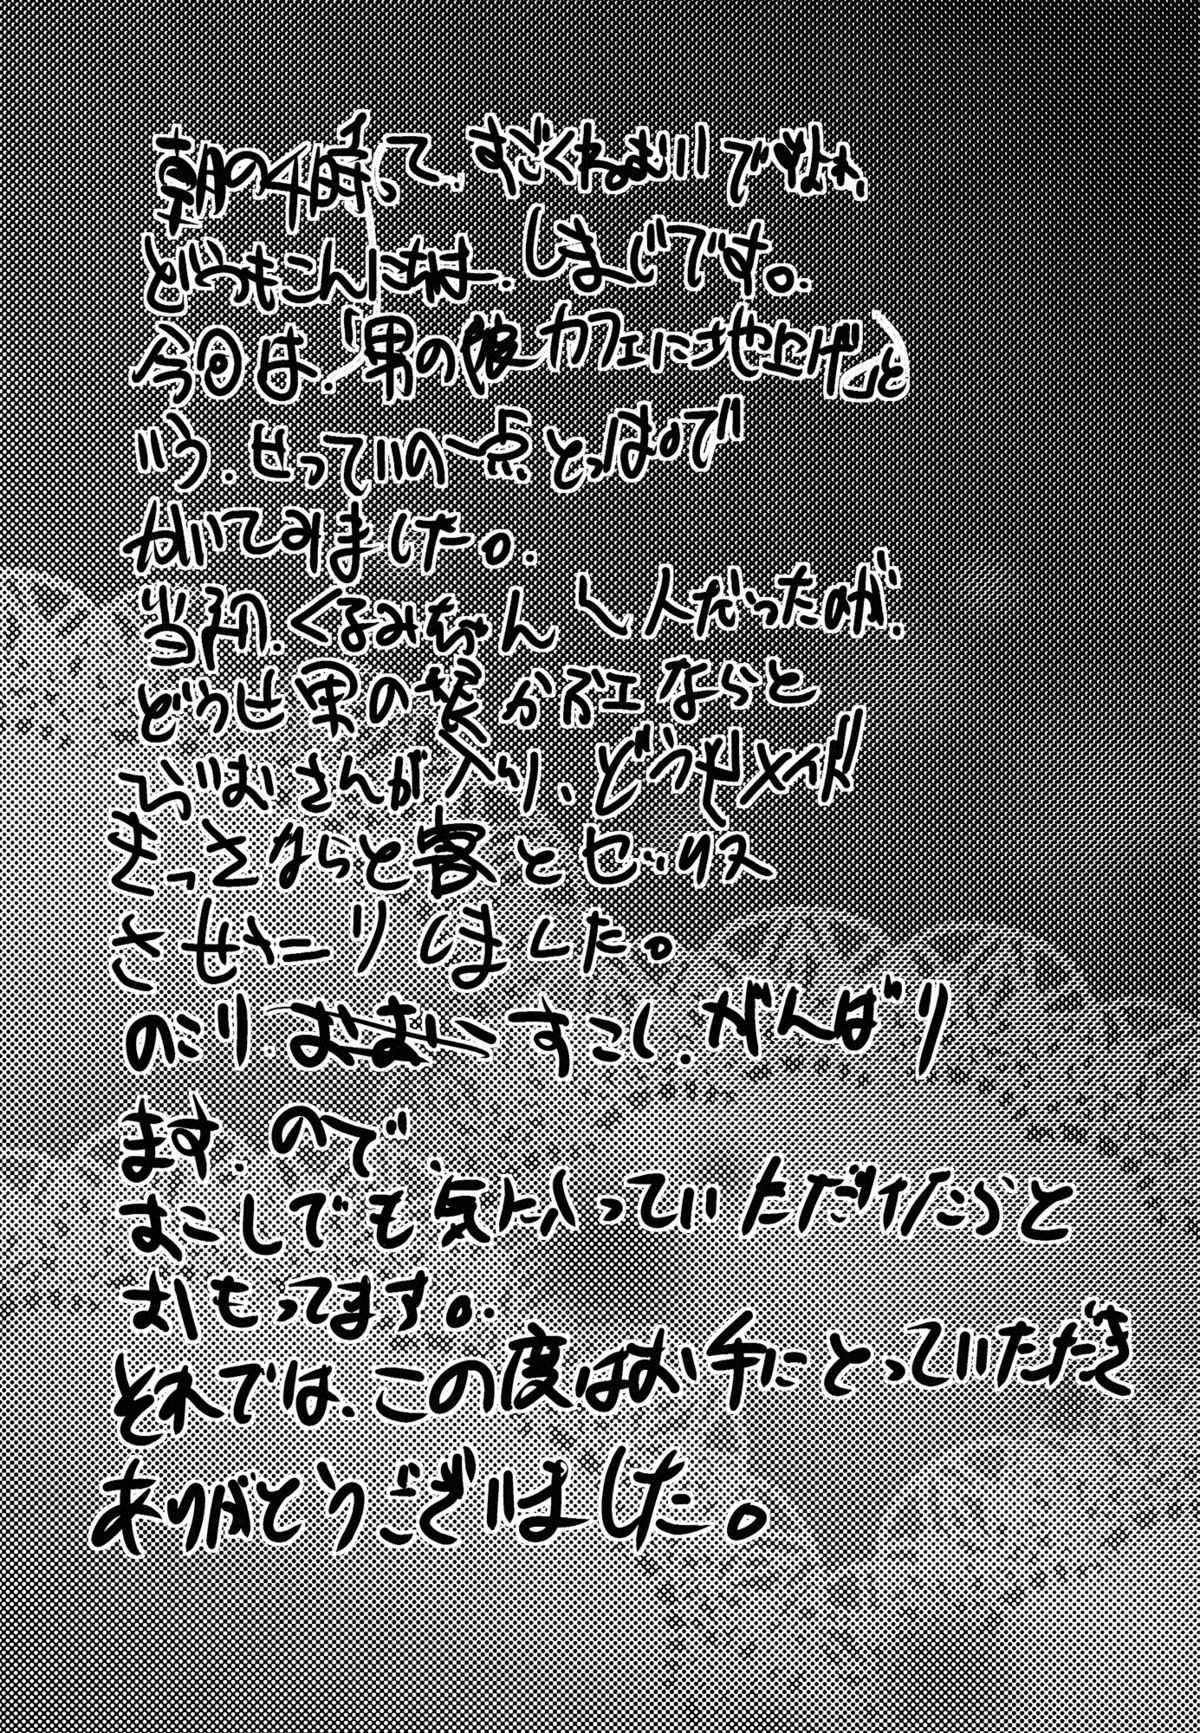 朝の4時って、すごくねむいですよね、
どうもこんにちは、しまじです。
今回は、「男の娘カフェに地上げ」と
いう、せっていの一点とっぱで
かいてみました。
当初、くるみちゃん1人だったのが、
どうせ男の娘かふェならと
らいおさんが入り、どうせメイド
きっさならと客とセックス
させたりしました。
のこり、すこし、がんばり
ます、ので、
すこしでも気に入っていただけたらと
おもってます。
それでは、この度はお手にとっていただき
ありがとうございました。